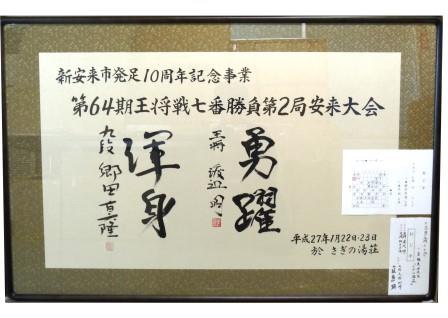 新安来市発足10周年記念事業
第64期王将戦七番勝負第2局安来大会
勇躍
王将 渡辺明
渾身
九段 郷田真隆
平成27年1月22日・23日
於 さぎの湯荘